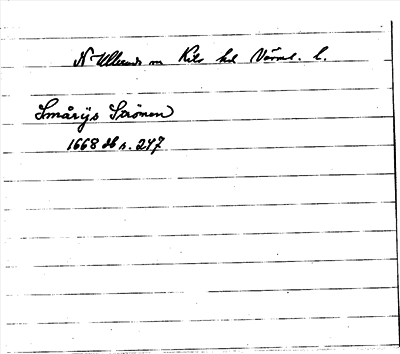 N Ullerud sn Kils hd Värml. l.
Smårijs Strömen
1668 db s. 247